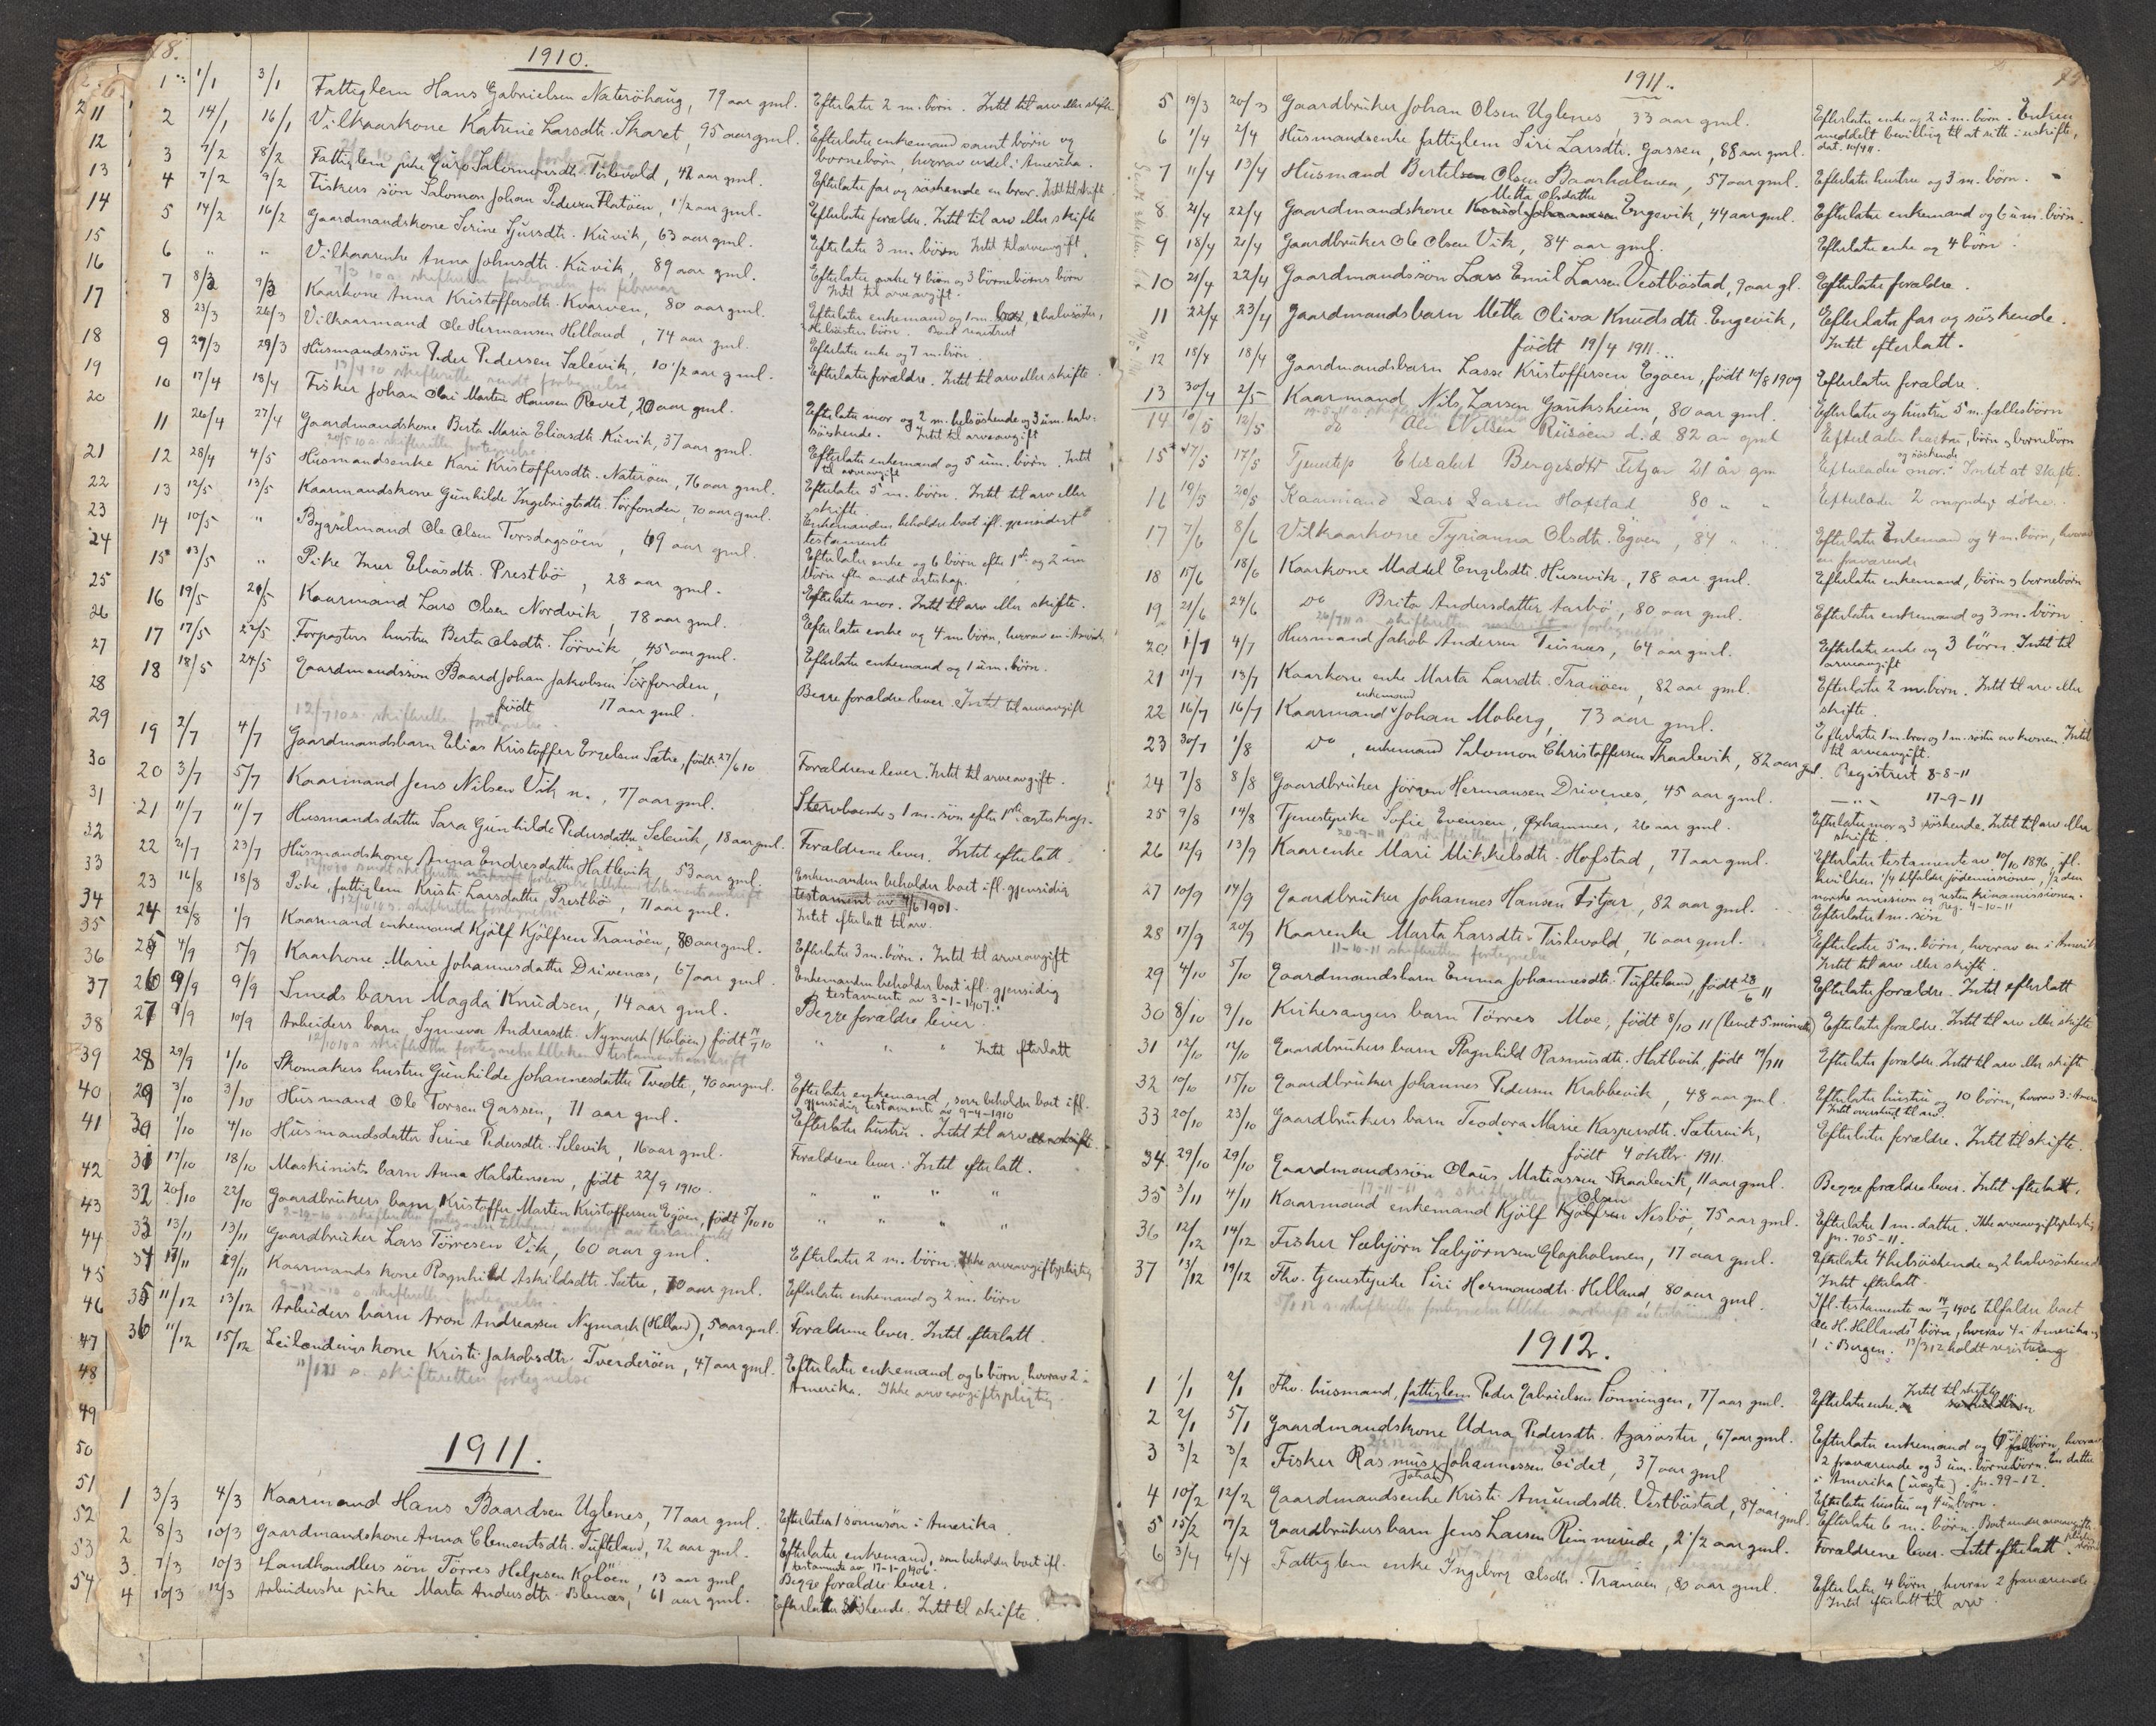 18.
1910.
1 1/1 3/1 Fattiglem Hans Gabrielsen Naterøhaug, 79 aar gml. Efterlater 2 m. børn. Intet til arv eller skifte
2 14/1 16/1 Vilkaarkone Katrine Larsdtr. Skaret, 95 aar gml. Efterlater enkemand samt børn og
børnebørn, hvorav endel i Amerika.
3 7/2 8/2 Fattiglem pike Guro Salomonsdtr. Tislevold, 42 aar gml. Efterlater far og søskende en bror. Intet til skifte
4 7/2 9/2 Fiskers søn Salomon Johan Pedersen Flatøen, 1 1/2 aar gml. Efterlater forældre. Intet til arv eller skifte
5 14/2 16/2 Gaardmandskone Serine Sjursdtr. Kuvik, 63 aar gml. Efterlater 3 m. børn Intet til arveavgift
6 " " Vilkaarenke Anna Johnsdtr. Kuvik, 89 aar gml. Efterlater 4 børn og 3 børnebørns børn
Intet til arveavgift.
7/3 10 s. skifteretten fortegnelse for februar
7 8/3 9/3 Kaarkone Anna Kristoffersdtr. Kvarven, 80 aar gml. Efterlater enkemand og 1 m. halvsøster,
8 23/3 26/3 Vilkaarmand Ole Hermansen Helland, 74 aar gml. Efterlater enke og 7 m. børn
9 27/3 29/3 Husmandssøn Peder Pedersen Sælevik, 10 1/2 aar gml. Efterlater forældre. Intet til arv eller skifte
10 17/4 18/4 Fisker Johan Olai Martin Hansen Revet, 20 aar gml. Efterlater mor og 2 m. helsøskende og 3 um. halv-
søskende. Intet til arveavgift
11 26/4 27/4 Gaardmandskone Berta Maria Eliasdtr. Kuvik, 37 aar gml. Efterlater enkemand og 5 um. børn. Intet
til arveavgift
20/5 10 s. skifteretten fortegnelse
12 28/4 4/5 Husmandsenke Kari Kristoffersdtr. Naterøen, 76 aar gml. Efterlater 5 m. børn. Intet til arv eller
skifte
13 12/5 13/5 Kaarmandskone Gunhilde Ingebrigtsdtr. Sørfonden, 70 aar gml. Enkemanden beholder boet ifl. gjensidigt
testament
14 10/5 " Bygselmand Ole Olsen Torsdagsøen, 69 aar gml. Efterlater enke og 6 børn efter 1ste og 2 um
børn efter andet egteskap.
15 13/5 " Pike Inger Eliasdtr. Prestbø, 28 aar gml. Efterlater mor. Intet til arv eller skifte.
16 19/5 21/5 Kaarmand Lars Olsen Nordvik, 78 aar gml. Efterlater enke og 4 m. børn, hvorav en i Amerika
17 17/5 22/5 Forpagters hustru Berta Olsdtr. Sørvik, 45 aar gml. Efterlater enkemand og 1 um. børn.
18 18/5 24/5 Gaardmandssøn Baard Johan Jakobsen Sørfonden,
17 aar gml. Begge forældre lever. Intet til arveavgift
12/7 10 s. skifteretten fortegnelse
19 2/7 4/7 Gaardmandsbarn Elias Kristoffer Engelsen Sætre, født 27/6 10 Forældrene lever. Intet til arveavgift.
20 3/7 5/7 Kaarmand Jens Nilsen Vik n., 77 aar gml. 1 m. søn efter 1ste egteskap.
21 11/7 11/7 Husmandsdatter Sara Gunhilde Pedersdatter Selevik, 18 aar gml. Forældrene lever. Intet efterlatt.
22 21/7 23/7 Husmandskone Anna Endresdatter Hatlevik, 53 aar gml. Enkemanden beholder boet ifl. gjensidig
testament av 4/6 1901.
23 16/8 18/8 Pike, fattiglem Kristi Larsdatter Prestbø, 71 aar gml. Intet efterlatt til arv.
24 28/8 1/9 Kaarmand enkemand Kjølf Kjølfsen Tranøen, 80 aar gml. Efterlater 3 m. børn. Intet til arveavgift
25 4/9 5/9 Kaarkone Marie Johannesdatter Drivenæs, 67 aar gml. Enkemanden beholder boet ifl. gjensidig
testamente av 3-1-1907.
26 9/9 9/9 Smeds barn Magda Knudsen, 14 aar gml. Begge forældre lever.
27 9/9 10/9 Arbeiders barn Synneva Andreasdtr. Nymark (Koløen) født 14/7 10 " " " Intet efterlatt
28 29/9 1/10 Skomakers hustru Gunhilde Johannesdatter Tvedte, 40 aar gml. Efterlater enkemand, som beholder boet ifl.
gjensidig testamente av 9-4-1910
29 3/10 3/10 Husmand Ole Torsen Gassen, 71 aar gml. Efterlater hustru. Intet til arv eller skifte
30 1/10 4/10 Husmandsdatter Serine Pedersdtr. Selevik, 16 aar gml. Forældrene lever. Intet efterlatt.
31 17/10 18/10 Maskinists barn Anna Halstensen, født 22/9 1910. " " " "
32 20/10 22/10 Gaardbrukers barn Kristoffer Martin Kristoffersen Egøen, født 5/10 10 " " " "
33 13/11 13/11 Gaardbruker Lars Tørresen Vik, 60 aar gml. Efterlater 2 m. børn. Ikke arveavgiftspligtig
34 17/11 19/11 Kaarmands kone Ragnhild Askildsdtr. Sætre, 70 aar gml. Efterlater enkemand og 2 m. børn
35 11/12 13/12 Arbeiders barn Aron Andreassen Nymark (Helland), 5 aar gml. Forældrene lever. Intet efterlatt.
36 11/12 15/12 Leilendings kone Kristi Jakobsdtr. Tverderøen, 47 aar gml. Efterlater enkemand og 6 børn, hvorav 2 i
Amerika. Ikke arveavgiftspligtig
s. skifteretten fortegnelse
1911.
1 3/3 4/3 Kaarmand Hans Baardsen Uglenes, 77 aar gml. Efterlater 1 sønnesøn i Amerika.
2 8/3 10/3 Gaardmandskone Anna Clementsdtr. Tufteland, 72 aar gml. Efterlater enkemand, som beholder boet ifl.
testamente av 17-1-1906.
3 7/3 10/3 Landhandlers søn Tørres Helgesen Koløen, 13 aar gml. Begge forældre lever.
4 10/3 12/3 Arbeiderske pike Marta Andersdtr. Blenæs, 61 aar gml. Efterlater søskende. Intet til skifte.
11
12
13
14
15
16
17
18
19
20
21
22
23
24
25
26
27
28
29
30
31
32
33
34
35
36
37
38
39
40
41
42
43
44
45
46
47
48
49
50
51
52
53
54
1911.
5 19/3 20/3 Gaardbruker Johan Olsen Uglenes, 33 aar gml. Efterlater enke og 2 um. børn. Enken
meddelt bevilling til at sitte i uskifte,
6 1/4 2/4 Husmandsenke fattiglem Siri Larsdtr. Gassen, 88 aar gml.
7 11/4 13/4 Husmand Bertel Olsen Baarholmen, 57 aar gml. Efterlater hustru og 3 m. børn.
Metta Olsdatter
8 21/4 22/4 Gaardmandskone Engevik, 44 aar gml. Efterlater enkemand og 6 um. børn.
9 18/4 21/4 Gaardbruker Ole Olsen Vik, 84 aar gml. Efterlater enke og 4 børn.
10 21/4 22/4 Gaardmandssøn Lars Emil Larsen Vestbøstad, 9 aar gl. Efterlater forældre.
11 22/4 23/4 Gaardmandsbarn Metta Oliva Knudsdtr. Engevik, Efterlater far og søskende.
født 19/4 1911. Intet efterlatt.
12 18/4 18/4 Gaardmandsbarn Lasse Kristoffersen Egøen, født 10/8 1909 Efterlater forældre.
13 30/4 2/5 Kaarmand Nils Larsen Gauksheim, 80 aar gml. Efterlater og hustru 5 m. fællesbørn
14 10/5 12/5 do Nilsen Risøen 82 aar gml Efterlader hustru, børn og børnebørn
15 17/5 Tjenestep Elisabet Bengtsdtr Fitjar 21 år gm Efterlader mor og søskende. Intet at skifte.
16 19/5 20/5 Kaarmand Lars Larsen Hofstad 80 " " Efterlader 2 myndige døtre.
17 7/6 8/6 Vilkaarkone Tyrianna Olsdtr. Egøen, 84 " " Efterlater Enkemand og 4 m. børn, hvorav
en fraværende
18 15/6 18/6 Kaarkone Maddel Engelsdtr. Husevik, 78 aar gml. Efterlater enkemand, børn og børnebørn
19 21/6 24/6 do Brita Andersdatter Aarbø, 80 aar gml. Efterlater enkemand og 3 m. børn
20 1/7 4/7 Husmand Jakob Andersen Teisnæs, 64 aar gml. Efterlater enke og 3 børn. Intet til
arveavgift
21 11/7 13/7 Kaarkone enke Marta Larsdtr. Tranøen, 82 aar gml. Efterlater 2 m. børn. Intet til arv eller
skifte.
22 16/7 16/7 Kaarmand enkemand Johan Moberg, 73 aar gml. Efterlater 1 m. bror og 1 m. søster av konen. Intet
til arveavgift.
23 30/7 1/8 do, enkemand Salomon Christoffersen Skaalevik, 82 aar gml. Registrert 8-8-11
24 7/8 8/8 Gaardbruker Jørgen Hermansen Drivenes, 45 aar gml. — " — 17-9-11
25 9/8 14/8 Tjenestepike Sofie Evensen Øxhammer, 26 aar gml. Efterlater mor og 3 søskende. Intet til arv eller
skifte.
26 12/9 13/9 Kaarenke Mari Mikkelsdtr. Hofstad, 77 aar gml. Efterlater testamente av 10/10 1896, ifl.
hvilken 1/4 tilfalder jødemissionen, 1/2 den
norske mission og resten Kinamissionen.
reg. 4-10-11
27 10/9 14/9 Gaardbruker Johannes Hansen Fitjar, 82 aar gml. Efterlater 1 m. søn
28 17/9 20/9 Kaarenke Marta Larsdtr. Tislevold, 76 aar gml. Efterlater 5 m. børn, hvorav en i Amerik
Intet til arv eller skifte.
11-10-11 skifteretten fortegnelse
29 4/10 5/10 Gaardmandsbarn Emma Johannesdtr. Tufteland, født 28/6 11 Efterlater forældre. Intet efterlatt
30 8/10 9/10 Kirkesangers barn Tørres Moe, født 8/10 11 (levet 5 minutter) Efterlater forældre. Intet til arv eller skifte
31 12/10 14/10 Gaardbrukers barn Ragnhild Rasmusdtr. Hatlevik, født 19/7 11 Efterlater forældre. Intet til arv eller skifte
32 10/10 15/10 Gaardbruker Johannes Pedersen Krabbevik, 48 aar gml. Efterlater hustru og 10 børn, hvorav 3 i Amerik
Intet overskud til arv.
33 20/10 23/10 Gaardbrukers barn Teodora Marie Kaspersdtr. Sætervik, Efterlater forældre. Intet til skifte.
født 4 oktbr. 1911.
34 29/10 29/10 Gaardmandssøn Olaus Matiassen Skaalevik, 11 aar gml. Begge forældre lever. Intet efterlatt.
Olsen
35 3/11 4/11 Kaarmand enkemand Kjølf Kjølfsen Nesbø, 75 aar gml. Efterlater 1 m. datter. Ikke arveavgiftspligtig
jn. 705-11.
36 12/12 14/12 Fisker Sæbjørn Sæbjørnsen Glapholmen, 17 aar gml. Efterlater 4 helsøskende og 2 halvsøskende
Intet efterlatt.
37 13/12 19/12 Fhv. tjenestepike Siri Hermansdtr. Helland, 80 aar gml. Ifl. testamente av 14/7 1906 tilfalder boet
Ole H. Hellands 7 børn, hvorav 4 i Amerika og
1 i Bergen. 13/3 12 holdt registrering
1912.
1 1/1 2/1 Fhv. husmand, fattiglem Peder Gabrielsen Lønningen, 77 aar gml. Efterlater enke. Intet til skifte
2 2/1 5/1 Gaardmandskone Udna Pedersdtr. Aga­søster, 67 aar gml. Efterlater enkemand og børn, hvorav
2 fraværende og 3 um. børnebørn. En datter
i Amerika (ugift). jn. 99-12.
3 3/2 3/2 Fisker Rasmus Johan Johannessen Eidet, 37 aar gml Efterlater hustru og 4 um børn.
4 10/2 12/2 Gaardmandsenke Kristi Amundsdtr. Vestbøstad, 84 aar gml. Efterlater 6 m. børn. Boet under arveavgifts-
5 15/2 17/2 Gaardbrukers barn Jens Larsen Rimmereide, 2 1/2 aar gml. Forældrene lever. Intet efterlatt.
6 3/4 4/4 Fattiglem enke Ingeborg Olsdtr. Tranøen, 80 aar gml. Efterlater 4 børn, hvorav 2 fraværende
Intet efterlatt til arv.